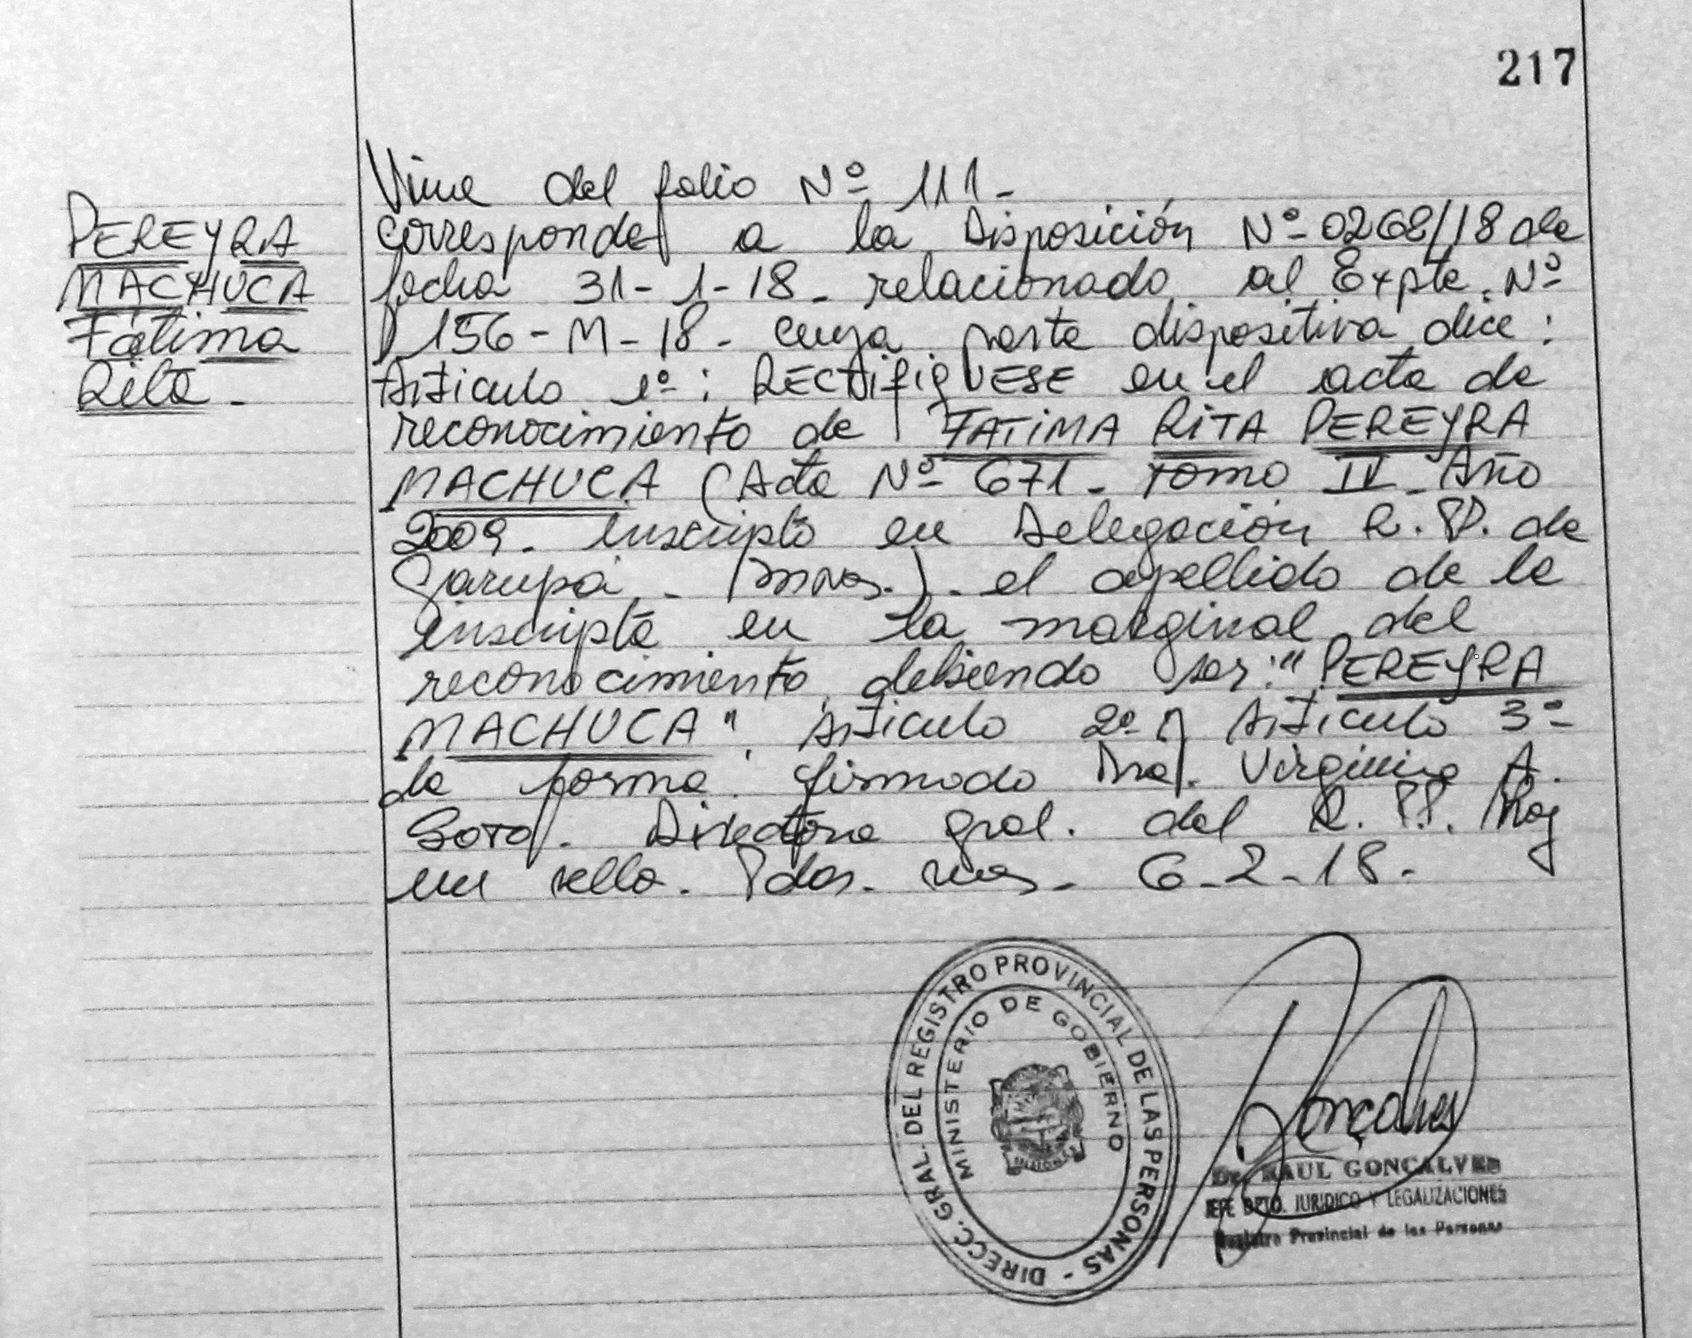 217
PEREYRA
MACHUCA
Fátima
Rita -
Viene del folio Nº 111 -
corresponde a la Disposición Nº 0268/18 de
fecha 31-1-18 - relacionado al Expte. Nº
156-M-18 - cuya parte dispositiva dice:
Articulo 1º: RECTIFIQUESE en el acta de
reconocimiento de FATIMA RITA PEREYRA
MACHUCA (Acta Nº 671 - Tomo IV - Año
2009 - Inscripto en Delegación R. P. de
Garupá - (Mnes.) - el apellido de la
inscripta en la marginal del
reconocimiento, debiendo ser: "PEREYRA
MACHUCA". Articulo 2º y Articulo 3º
de forma. firmado Dra. Virginia A.
Soto. Directora gral. del R. PP. Hay
un sello. Pdas. Mnes - 6-2-18.
DIRECC. GRAL. DEL REGISTRO PROVINCIAL DE LAS PERSONAS -
MINISTERIO DE GOBIERNO
MISIONES
Goncalves
Dr. RAUL GONCALVES
JEFE DPTO. JURIDICO Y LEGALIZACIONES
Registro Provincial de las Personas